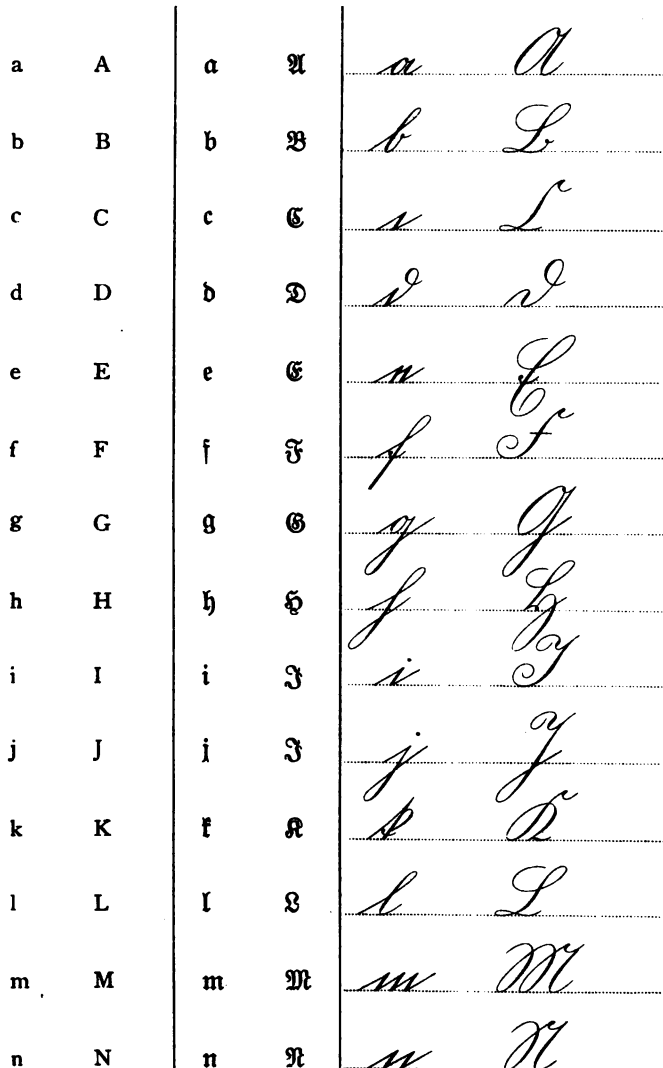 a A a A a A
b B b B b B
c C c C c C
d D d D d D
e E e E e E
f F f F f F
g G g G g G
h H h H h H
i I i I i I
j J j J j J
k K k K k K
l L l L l L
m M m M m M
n N n N n N